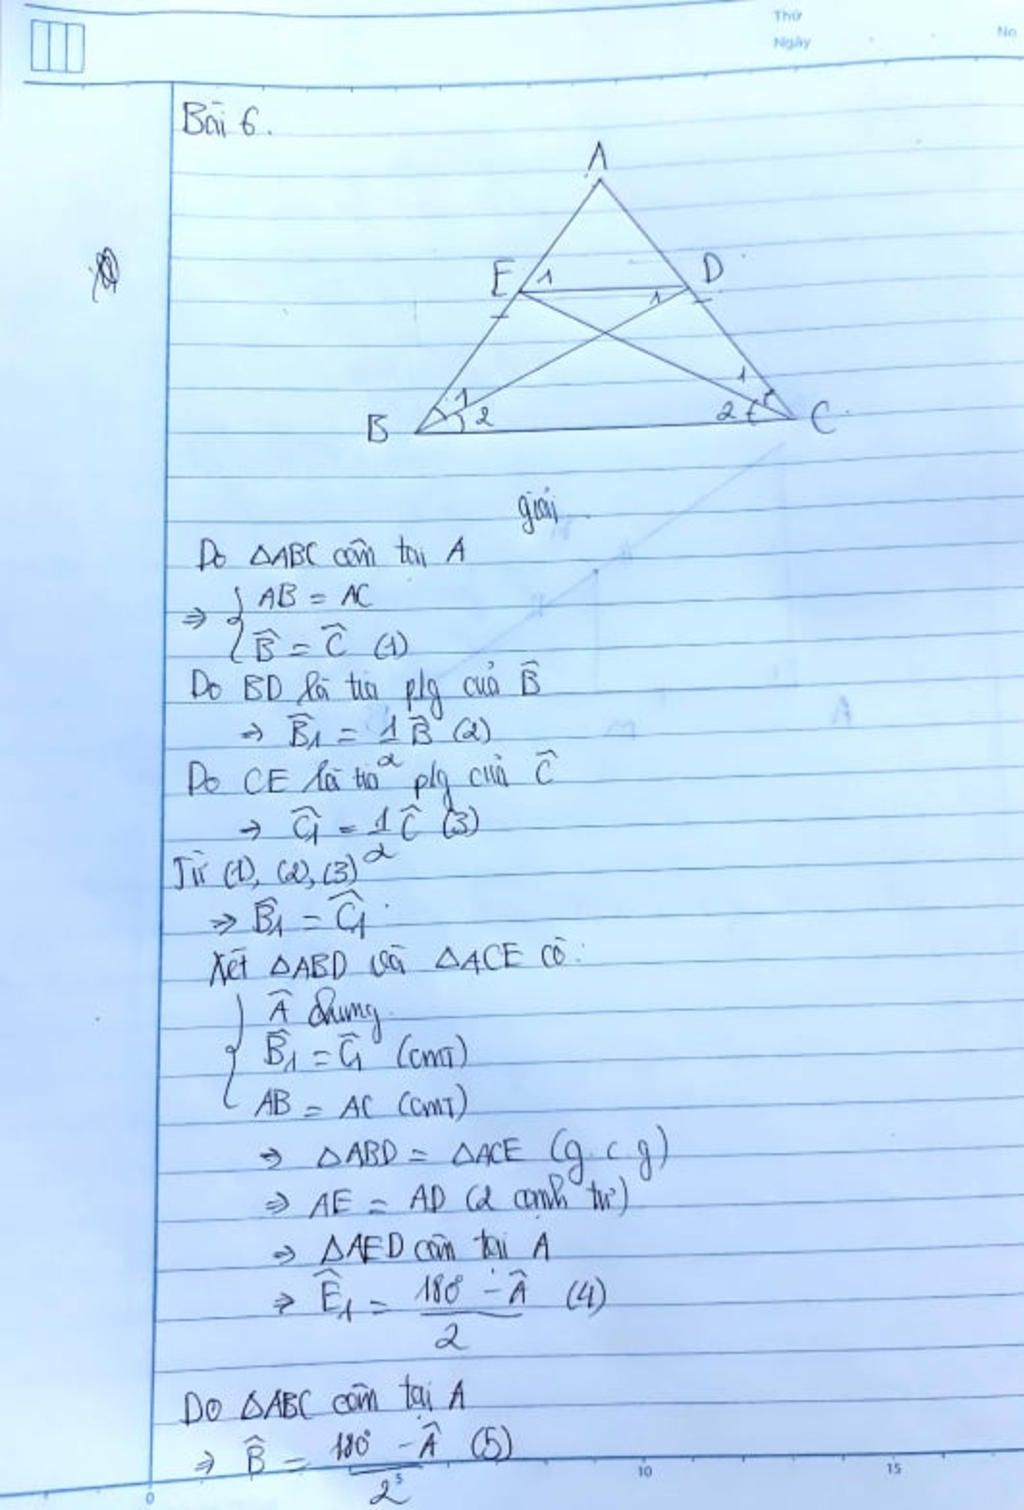 Thứ
Ngày
No
Bài 6.
A
E 1 D
1
1
B 1 2 2 C
giải
Do △ABC cân tại A
⇒ { AB = AC
B̂ = Ĉ (1)
Do BD là tia plg của B̂
⇒ B̂₁ = 1/2 B̂ (2)
Do CE là tia plg của Ĉ
⇒ Ĉ₁ = 1/2 Ĉ (3)
Từ (1), (2), (3)
⇒ B̂₁ = Ĉ₁
Xét △ABD và △ACE có:
{ Â chung
B̂₁ = Ĉ₁ (cmT)
AB = AC (cmT)
⇒ △ABD = △ACE (g.c.g)
⇒ AE = AD (2 cạnh tư)
⇒ △AED cân tại A
⇒ Ê₁ = (180° - Â)/2 (4)
Do △ABC cân tại A
⇒ B̂ = (180° - Â)/2 (5)
0 5 10 15